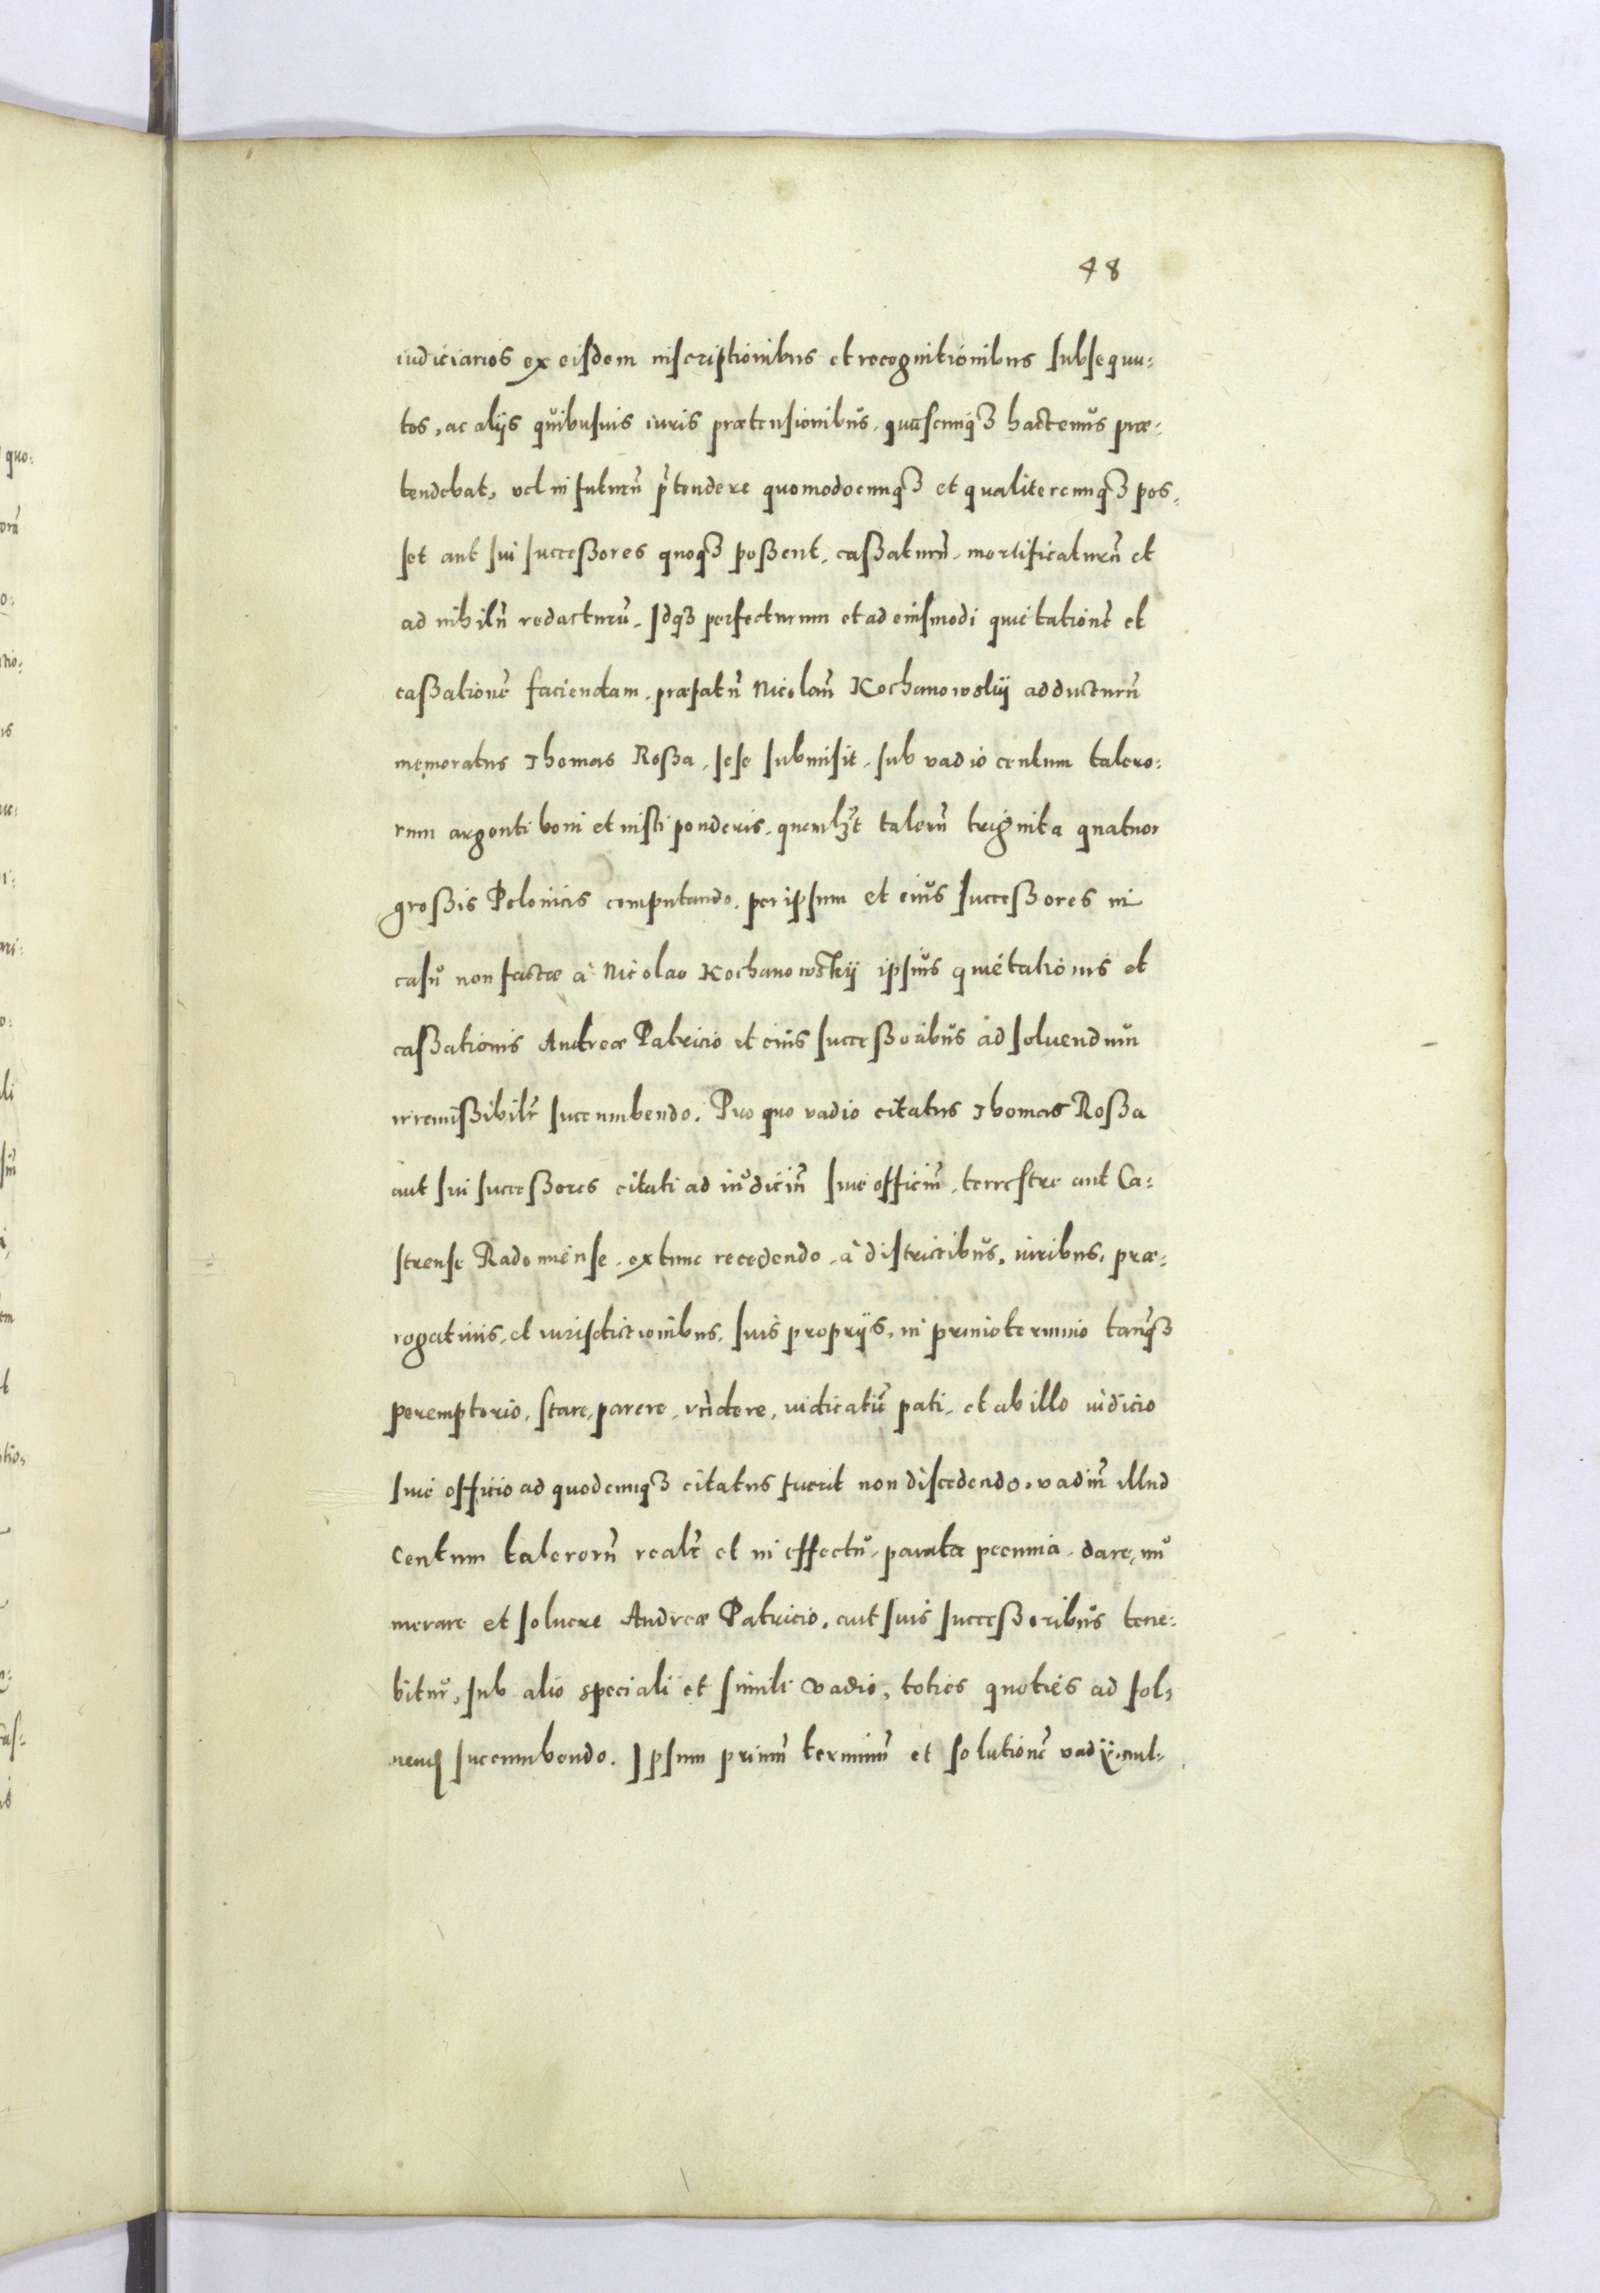 48
iudiciarios ex eisdem inscriptionibus et recognitionibus subsequu:
tos, ac alijs quibusuis iuris prætensionibus, quascunq3 hactenus præ:
tendebat, vel in futurũ p̃tendere quomodocunq3 et qualitercunq3 pos,
set aut sui successores quoq3 possent, cassaturũ, mortificaturũ et
ad nihilũ redacturũ, Idq3 perfecturum et ad eiusmodi quietationẽ et
cassationẽ faciendam, præfatũ Nicolaũ Kochanowskij adducturũ
memoratus Thomas Rossa, sese submisit, sub vadio centum talero:
rum argenti boni et iusti ponderis, quemlʒt talerũ triginta quatuor
grossis Polonicis computando, per ipsum et eius successores in
casu non factæ à Nicolao Kochanowskij ipsius quietationis et
cassationis Andreæ Patricio et eius successoribus ad soluendum
irremissibilr̃ succumbendo. Pro quo vadio citatus Thomas Rossa
aut sui successores citati ad iudiciũ siue officiũ, terrestre aut Ca:
strense Radomiense, extunc recedendo, à districtibus, iuribus, præ:
rogatiuis, et iurisdictionibus, suis proprijs, in primo termino tanq3
peremptorio, stare, parere, rñdere, iudicatũ pati, et ab illo iudicio
siue officio ad quodcunq3 citatus fuerit non discedendo, vadiũ illud
centum talerorũ realr̃ et in effectu, parata pecunia, dare, nu
merare et soluere Andreæ Patricio, aut suis successoribus tene:
bitur, sub alio speciali et simili vadio, toties quoties ad sol,
uend̃ succumbendo. Ipsum primũ terminũ et solutionẽ vadij, nul,